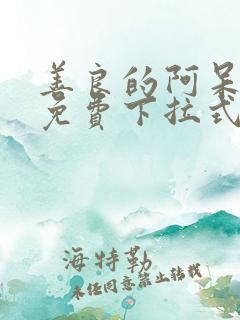 善良的阿呆
免费下拉式
海特勒
未经同意禁止转载